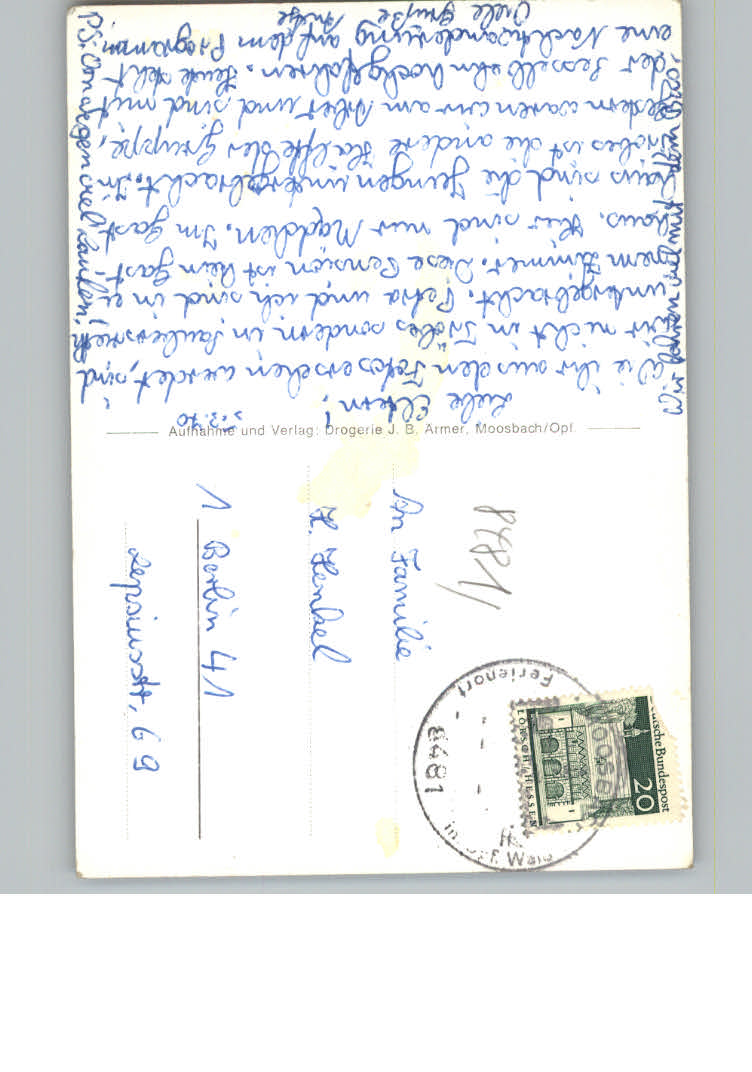 3.3.70
Liebe Eltern!
Wie ihr aus den Fotos ersehen werdet, sind
wir nicht in Tröbes sondern in Saubersrieth
untergebracht. Petra und ich sind in ei-
nem Zimmer. Diese Pension ist kein Gast-
haus. Hier sind nur Mädchen. Im Gast-
haus sind die Jungen untergebracht. In
Tröbes ist die andere Hälfte der Gruppe,
gestern waren wir am Arber und sind mit
der Sesselbahn hochgefahren. Heute steht
eine Nachtwanderung auf dem Programm.
Viele Grüße
Antje
PS: Omas gen viel laufen!
Aufnahme und Verlag: Drogerie J. B. Armer, Moosbach/Opf.
An Familie
H. Henkel
1 Berlin 41
Lepsiusstr. 69
8481
8481
Ferienort
im Opf. Wald
Deutsche Bundespost
20
LORSCH/HESSEN